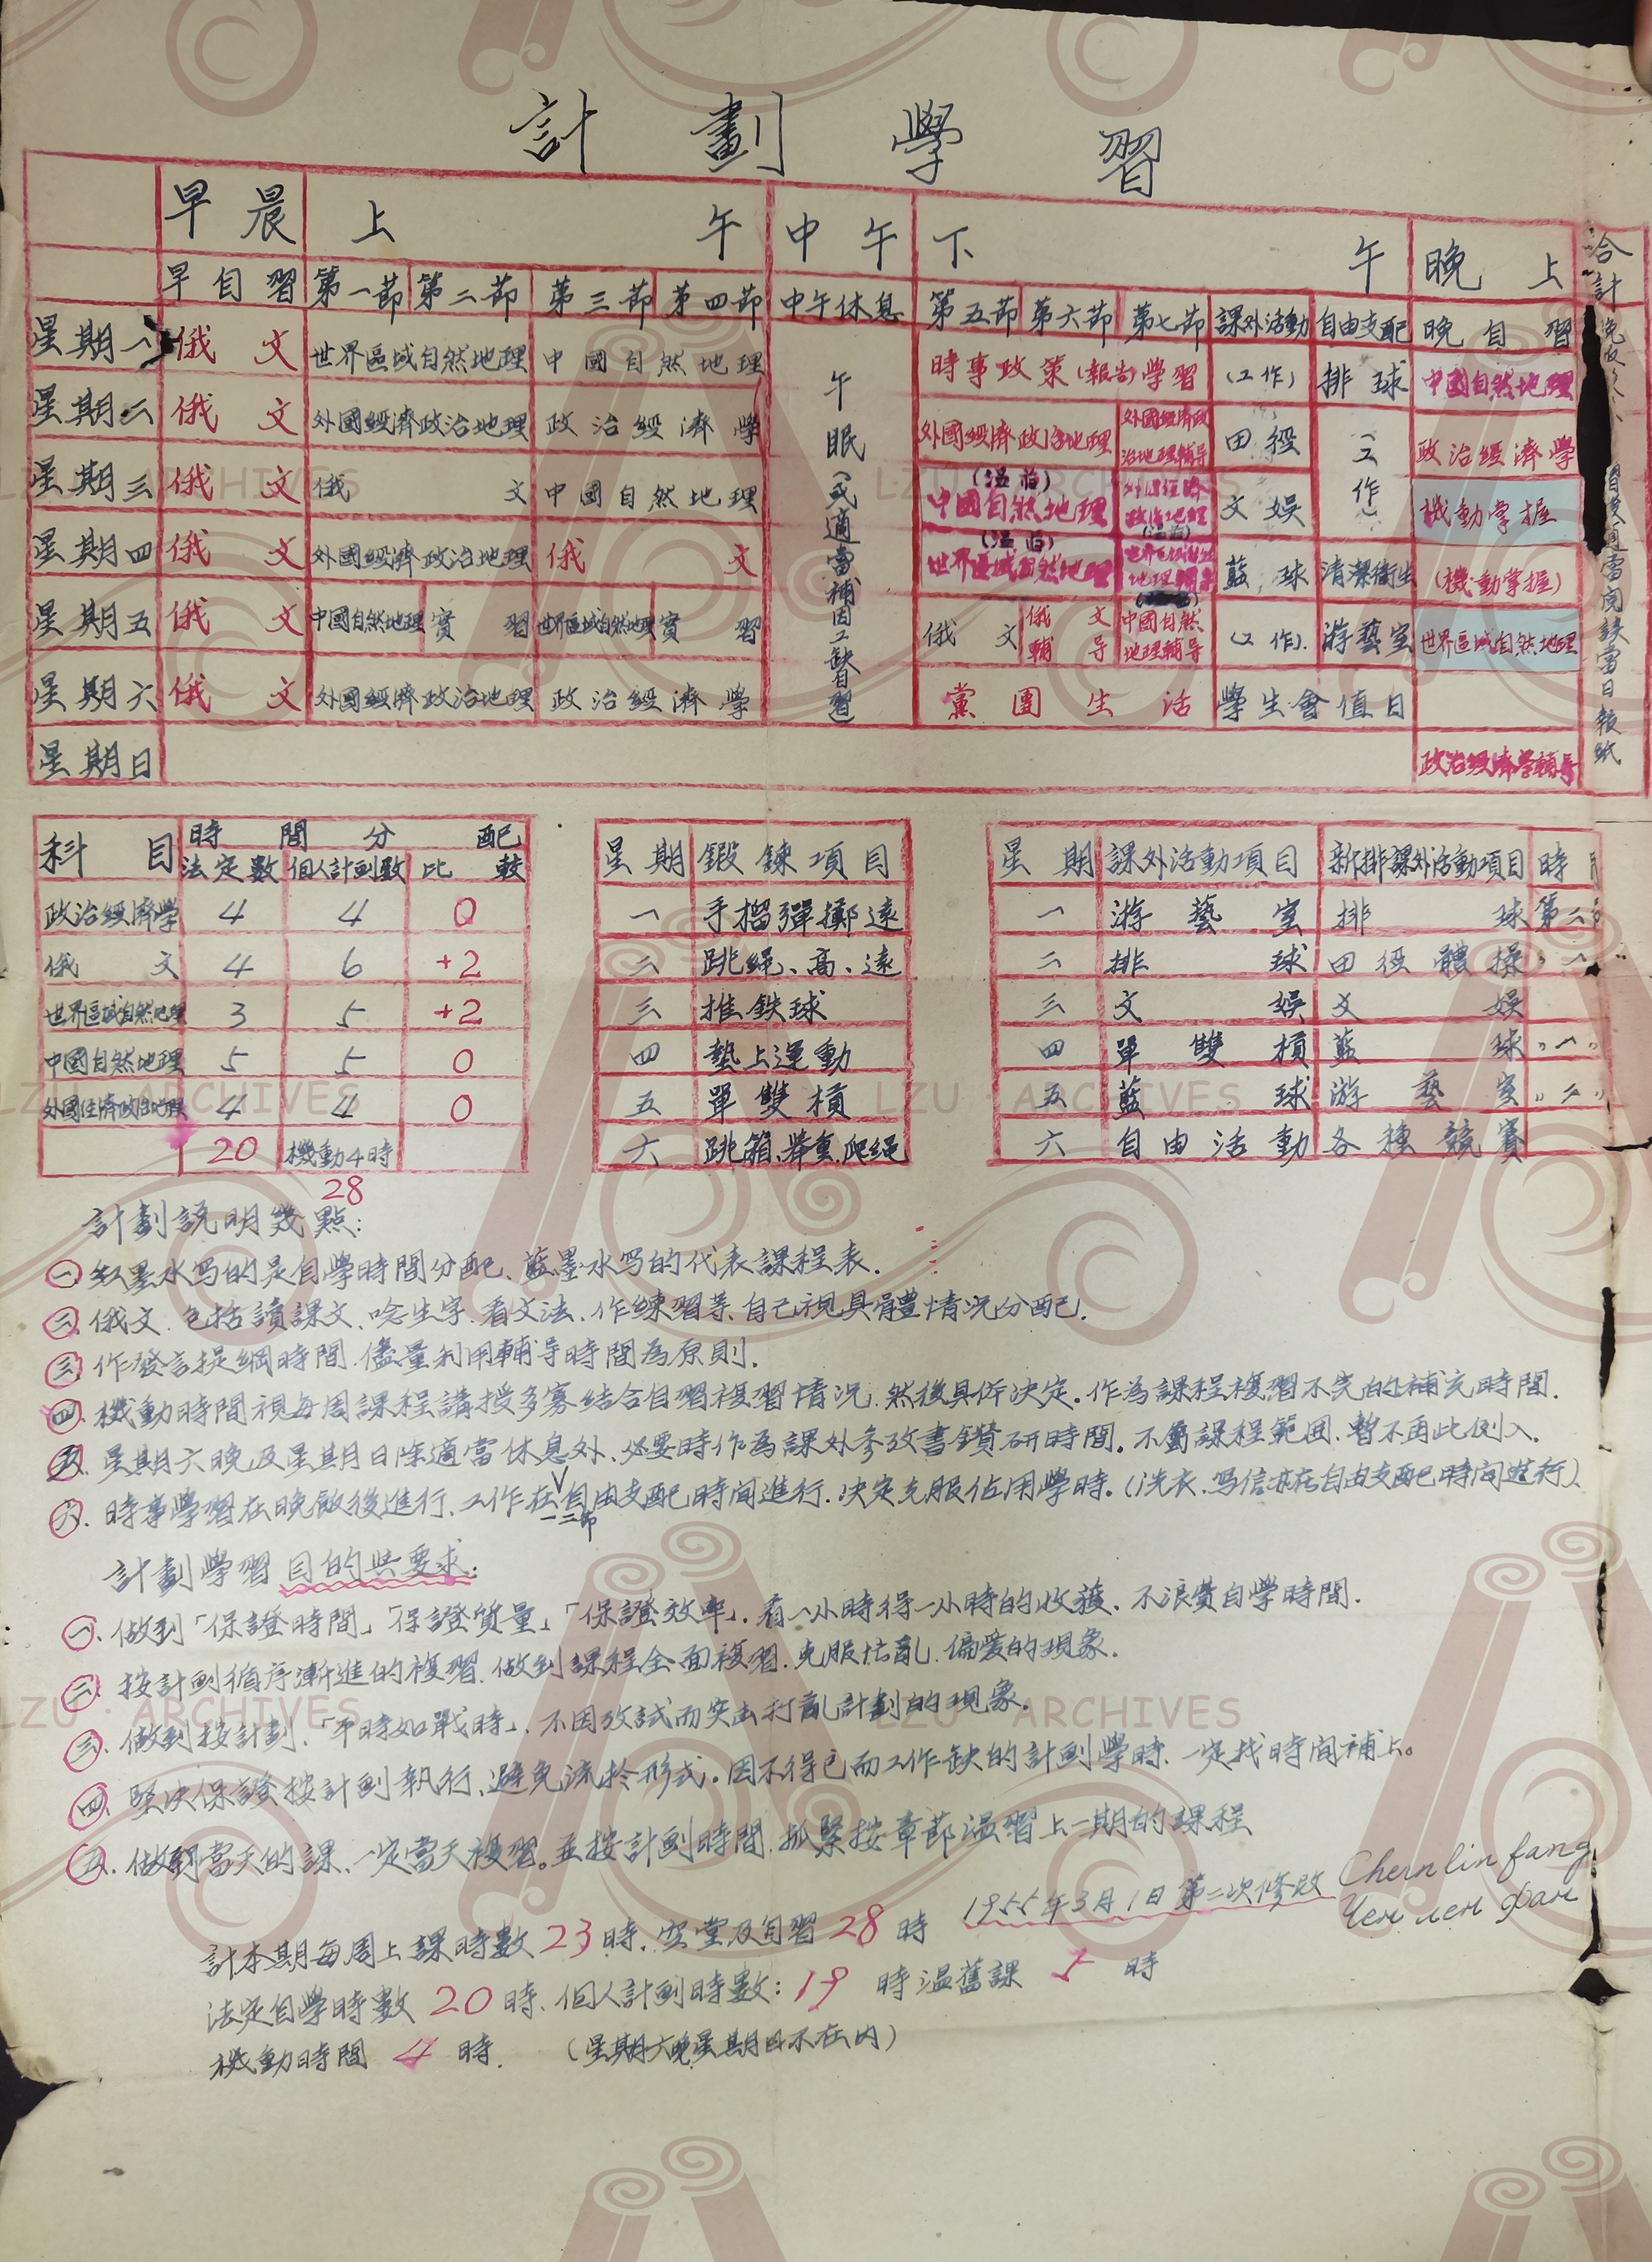 計劃學習
早晨 上午 中午 下午 晚上 合計
早自習 第一節 第二節 第三節 第四節 中午休息 第五節 第六節 第七節 課外活動 自由支配 晚自習
星期一 俄文 世界區域自然地理 中國自然地理 時事政策(報告)學習 (工作) 排球 中國自然地理
星期二 俄文 外國經濟政治地理 政治經濟學 外國經濟政治地理 外國經濟政治地理輔导 田徑 (工作) 政治經濟學
星期三 俄文 俄文 中國自然地理 (温旧) 中國自然地理 外國經濟政治地理 文娛 機動掌握
星期四 俄文 外國經濟政治地理 俄文 (温旧) 世界區域自然地理 籃球 清潔衛生 (機動掌握)
星期五 俄文 中國自然地理 實習 世界區域自然地理 實習 俄文 俄文輔导 中國自然地理輔导 (工作). 游藝室 世界區域自然地理
星期六 俄文 外國經濟政治地理 政治經濟學 黨團生活 學生會值日
星期日 政治經濟學輔导
午眠(或適當補因工缺習)
當日報紙
科目 時間分配
法定數 個人計劃數 比較
政治經濟學 4 4 0
俄文 4 6 +2
世界區域自然地理 3 5 +2
中國自然地理 5 5 0
外國經濟政治地理 4 4 0
20 機動4時
28
星期 鍛鍊項目
一 手榴彈擲遠
二 跳繩、高、遠
三 推鉄球
四 墊上運動
五 單雙槓
六 跳箱、舉重、爬繩
星期 課外活動項目 新排課外活動項目 時
一 游藝室 排球 第二
二 排球 田徑體操 〃一
三 文娛 文娛
四 單雙槓 籃球 〃一〃
五 籃球 游藝室 〃二〃
六 自由活動 各種競賽
計劃説明幾點:
㊀ 紅墨水写的是自學時間分配、藍墨水写的代表課程表.
㊁ 俄文.包括讀課文、唸生字.看文法.作練習等、自己視具體情况分配.
㊂ 作發言提綱時間.儘量利用輔导時間為原則.
㊃ 機動時間視每周課程講授多寡結合自習複習情况.然後具体决定。作為課程複習不完的補充時間.
㊄. 星期六晚及星期日除適當休息外、必要時作為課外參攷書鑽研時間。不屬課程範囲.暫不再此例入.
㊅. 時事學習在晚飯後進行、工作在一二節自由支配時間進行.决定克服佔用學時。(洗衣.写信亦在自由支配時間進行)、
計劃學習目的與要求:
㊀. 做到「保證時間」「保證質量」「保證效率」.看一小時得一小時的收獲.不浪費自學時間.
㊁. 按計劃循序漸進的複習.做到課程全面複習.克服忙亂.偏愛的現象.
㊂. 做到按計劃、「平時如戰時」.不因攷試而突击打亂計劃的現象.
㊃. 堅决保證按計劃執行、避免流於形式。因不得已而工作缺的計劃學時.一定找時間補上。
㊄. 做到當天的課、一定當天複習。並按計劃時間.抓緊按章節温習上一期的課程
1955年3月1日第二次修改 Chern lin fang
計本期每周上課時數23時.空堂及自習28時
法定自學時數20時、個人計劃時數:19時 温舊課 5 時
機動時間 4 時. (星期六晚星期日不在内)
LZU ARCHIVES